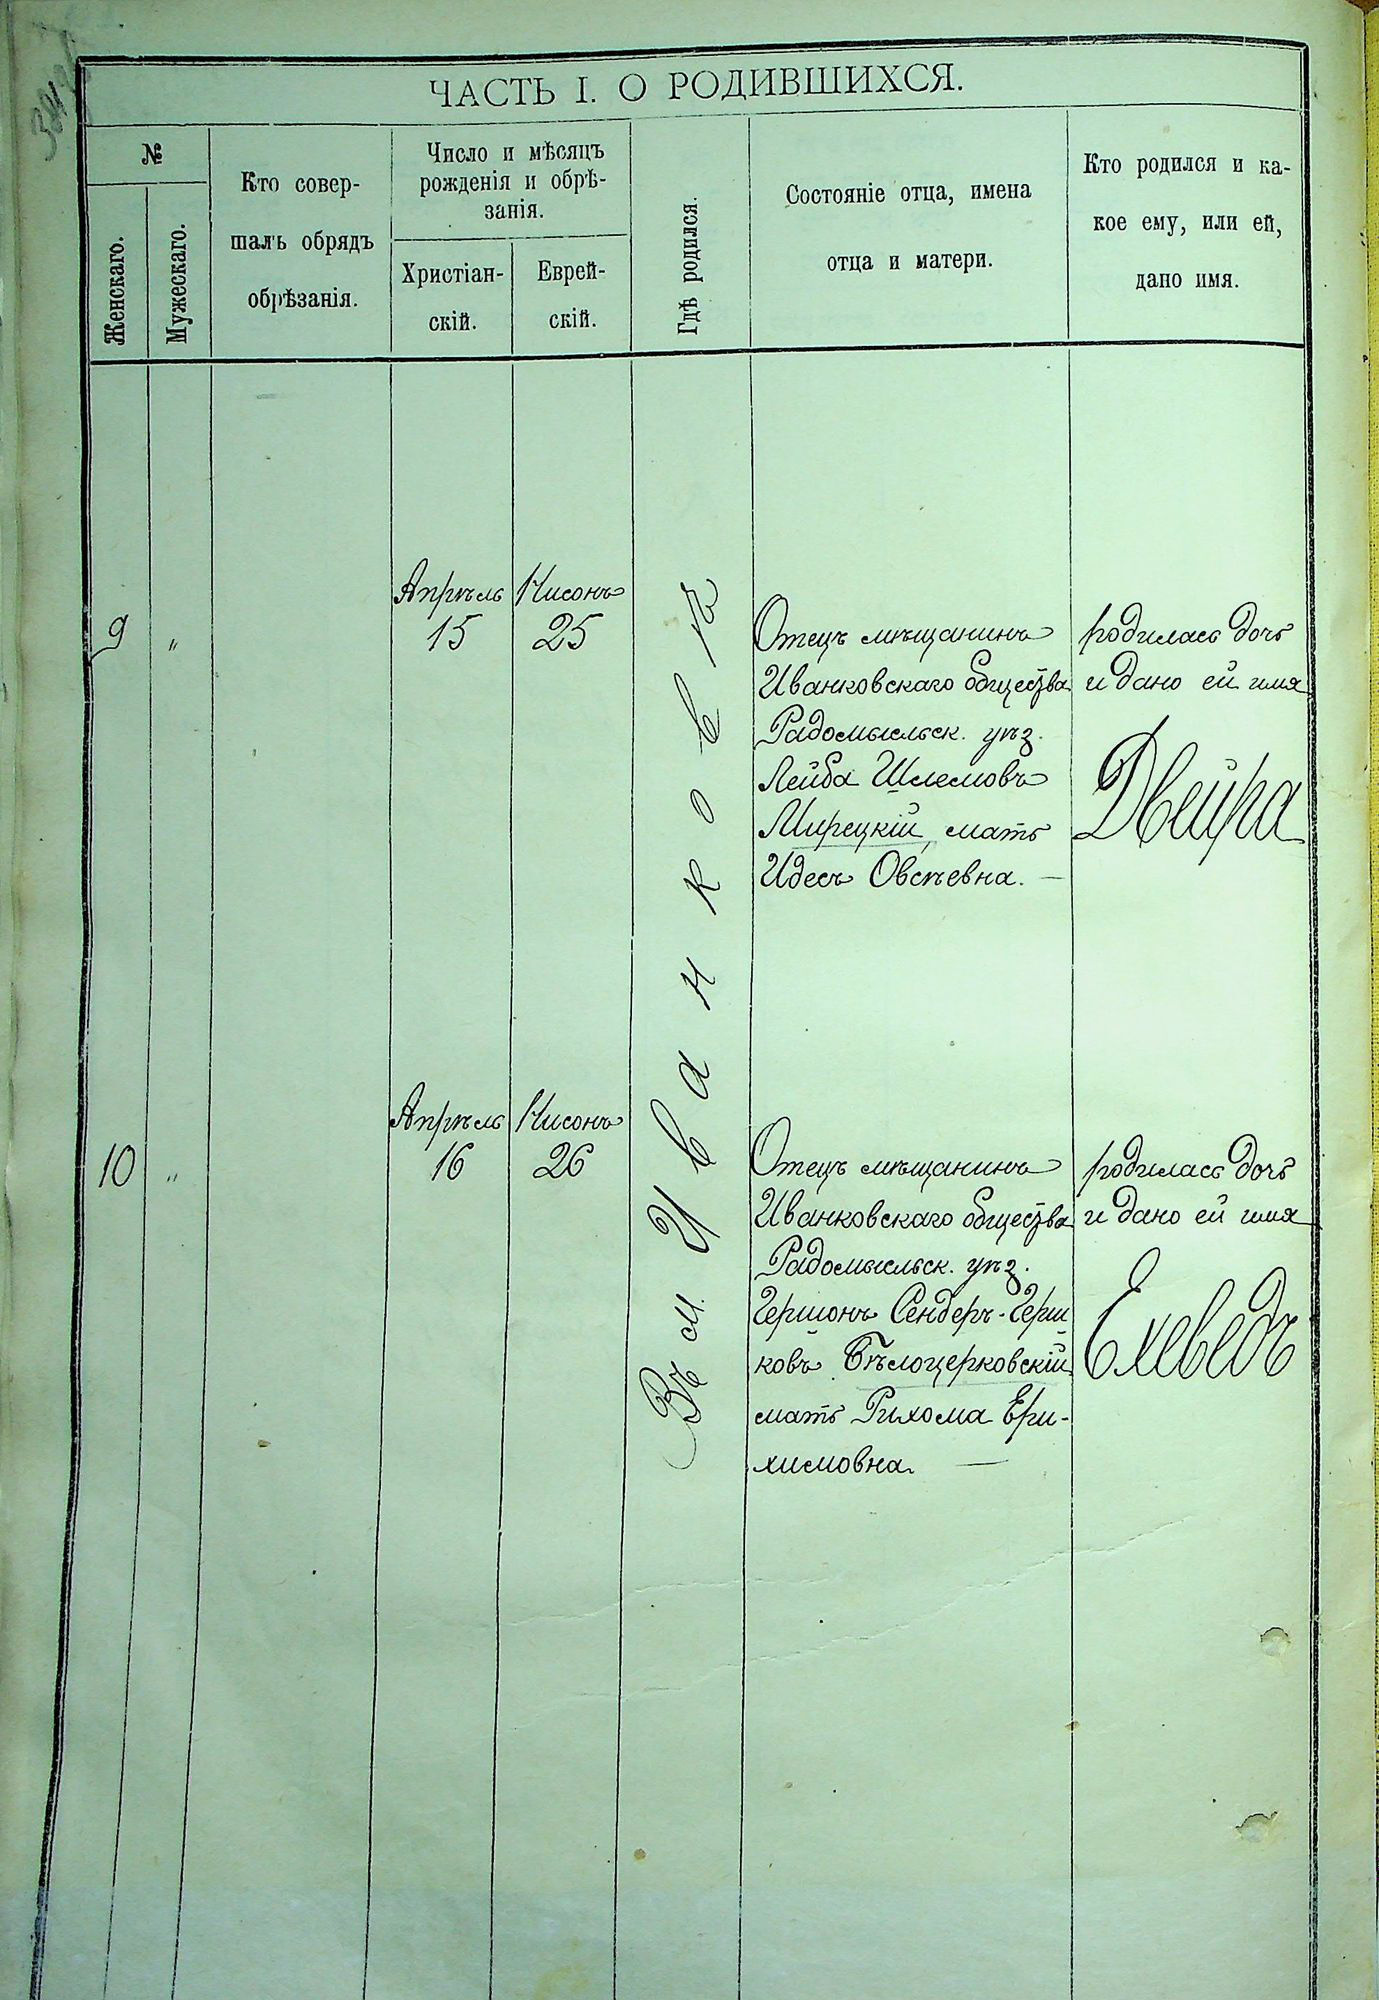 ЧАСТЬ I. О РОДИВШИХСЯ.
№
Женскаго.
Мужескаго.
Кто совер-
шалъ обрядъ
обрѣзанія.
Число и мѣсяцъ
рожденія и обрѣ-
занія.
Христіан-
скій.
Еврей-
скій.
Гдѣ родился.
Состояніе отца, имена
отца и матери.
Кто родился и ка-
кое ему, или ей,
дано имя.
Въ м. Иванковѣ
9
"
Апрѣль
15
Нисонъ
25
Отецъ мѣщанинъ
Иванковскаго общества
Радомысльск. уѣз.
Лейба Шлемовъ
Мирецкій, мать
Идесъ Овсѣевна. —
родилась дочь
и дано ей имя
Двейра
10
"
Апрѣль
16
Нисонъ
26
Отецъ мѣщанинъ
Иванковскаго общества
Радомысльск. уѣз.
Гершонъ Сендеръ-Герш
ковъ Бѣлоцерковскій
мать Рихома Ери-
химовна. —
родилась дочь
и дано ей имя
Ехеведъ